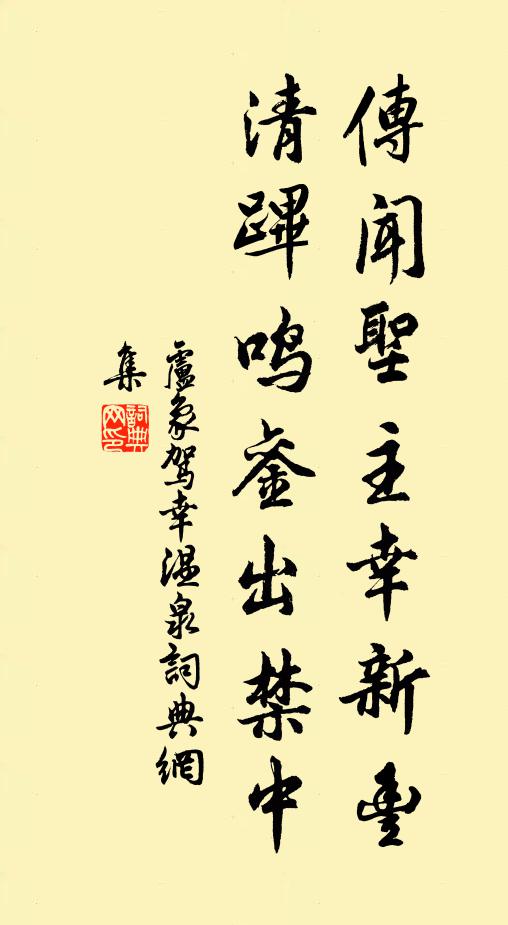 傳聞聖主幸新豐
清蹕鳴銮出禁中
盧象駕幸温泉詞典網
集
詞典
网印